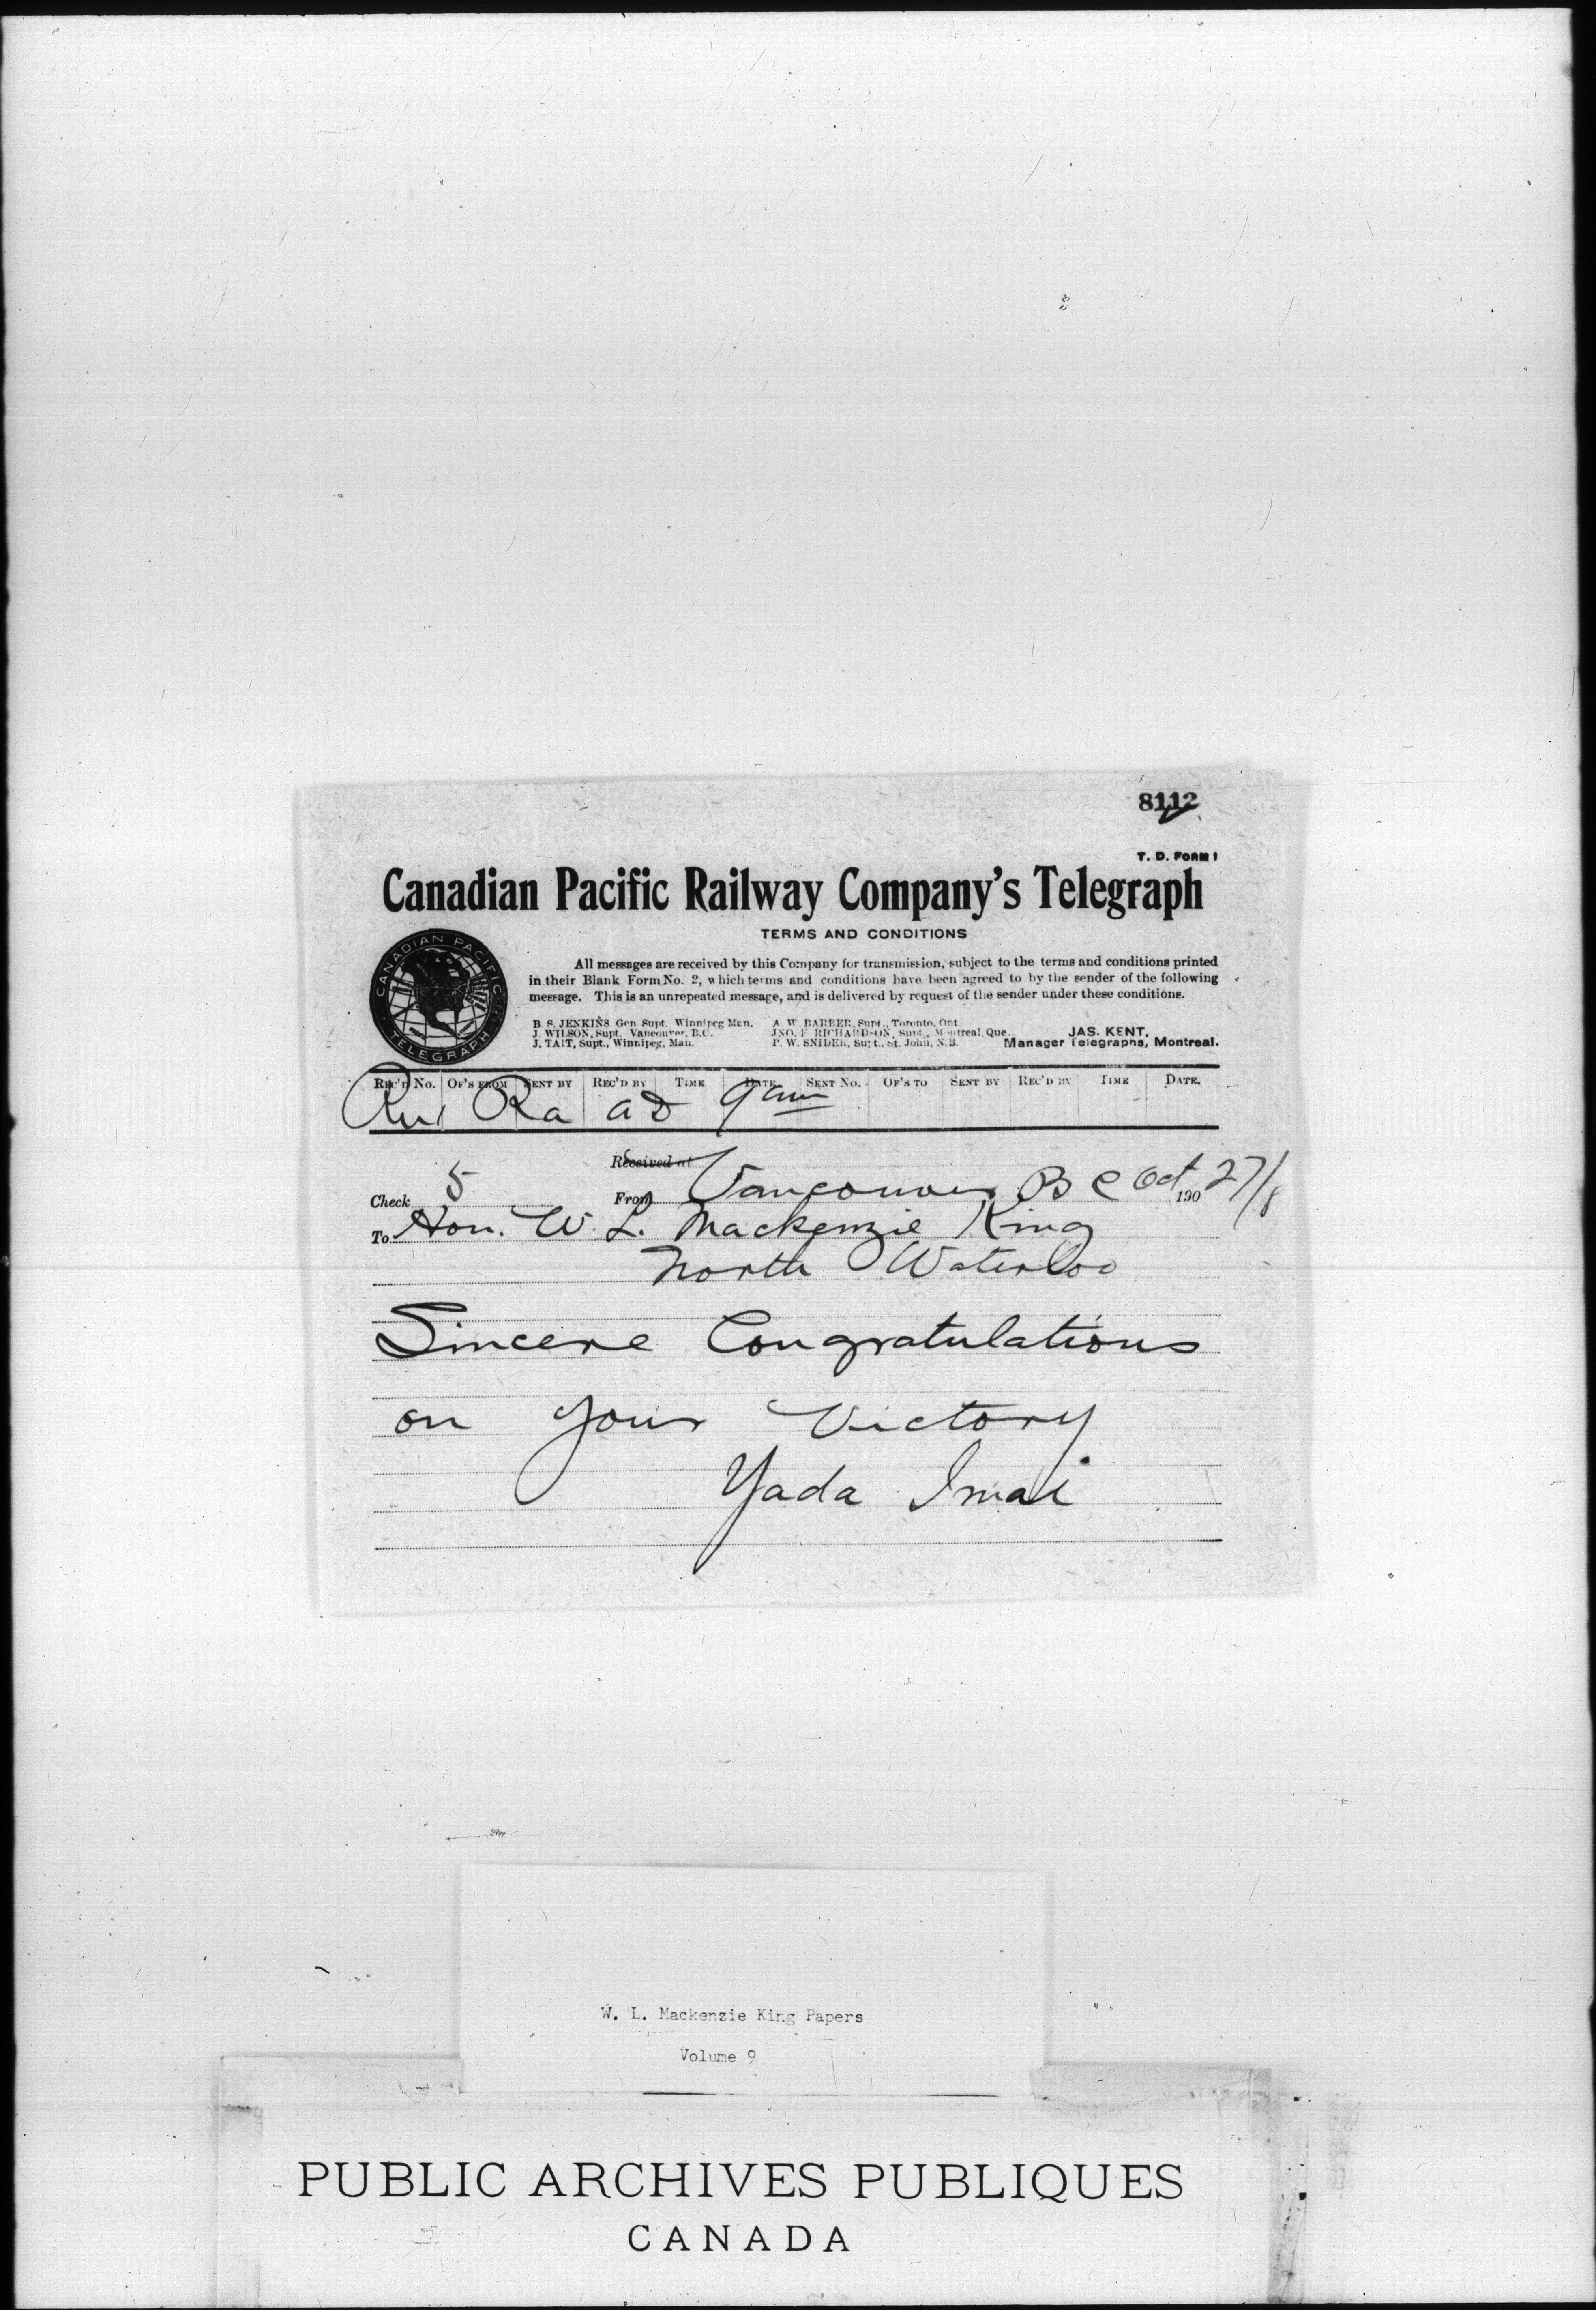 8112
T. D. FORM 1
Canadian Pacific Railway Company's Telegraph
TERMS AND CONDITIONS
CANADIAN PACIFIC
TELEGRAPH
All messages are received by this Company for transmission, subject to the terms and conditions printed
in their Blank Form No. 2, which terms and conditions have been agreed to by the sender of the following
message. This is an unrepeated message, and is delivered by request of the sender under these conditions.
B. S. JENKINS. Gen Supt. Winnipeg Man. A. W. BARBER, Supt., Toronto, Ont
J. WILSON, Supt. Vancouver, B.C. JNO. F RICHARDSON, Supt., Montreal, Que. JAS. KENT,
J. TAIT, Supt., Winnipeg, Man. P. W. SNIDER, Supt., St. John, N.B. Manager Telegraphs, Montreal.
REC'D No. OF'S FROM SENT BY REC'D BY TIME DATE SENT No. OF'S TO SENT BY REC'D BY TIME DATE.
Ra 9 am
Received at
Check 5 From Vancouver B C Oct 190 27/8
To Hon. W. L. Mackenzie King
North Waterloo
Sincere Congratulations
on your Victory
Yada Imai
W. L. Mackenzie King Papers
Volume 9
PUBLIC ARCHIVES PUBLIQUES
CANADA